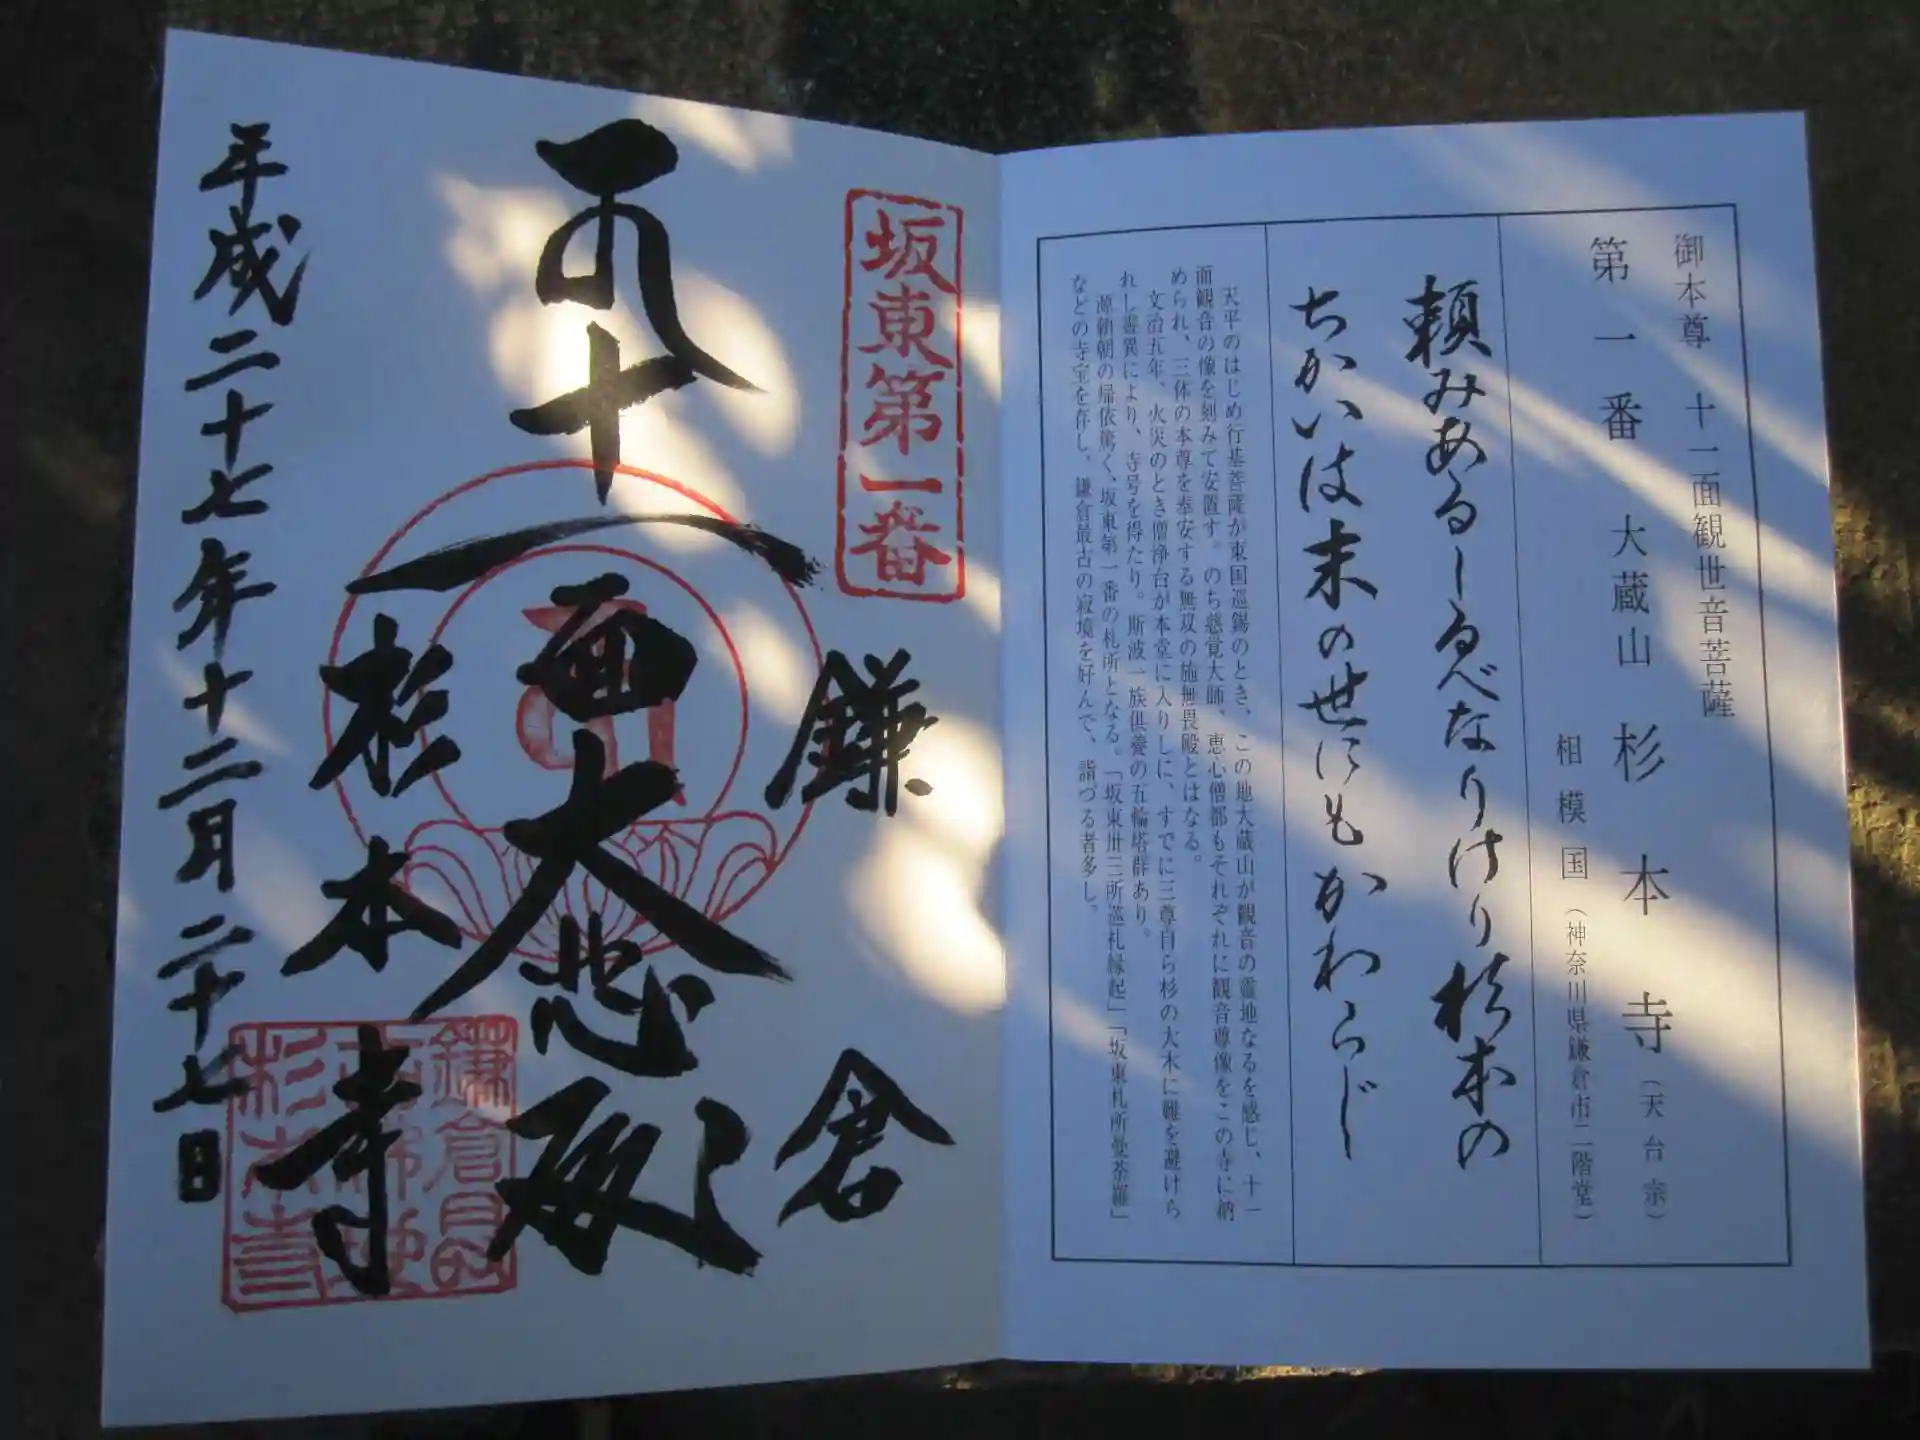 御本尊 十一面観世音菩薩
第一番 大蔵山 杉本寺（天台宗）
相模国（神奈川県鎌倉市二階堂）
頼みあるしるべなりけり杉本の
ちかいは末の世にもかわらじ
天平のはじめ行基菩薩が東国巡錫のとき、この地大蔵山が観音の霊地なるを感じ、十一
面観音の像を刻みて安置す。のち慈覚大師、恵心僧都もそれぞれに観音尊像をこの寺に納
められ、三体の本尊を奉安する無双の施無畏殿とはなる。
文治五年、火災のとき僧浄台が本堂に入りしに、すでに三尊自ら杉の大木に難を避けら
れし霊異により、寺号を得たり。斯波一族供養の五輪塔群あり。
源頼朝の帰依篤く、坂東第一番の札所となる。「坂東卅三所巡礼縁起」「坂東札所曼荼羅」
などの寺宝を存し、鎌倉最古の寂境を好んで、詣づる者多し。
坂東第一番
鎌倉
十一面大悲殿
杉本寺
平成二十七年十二月二十七日